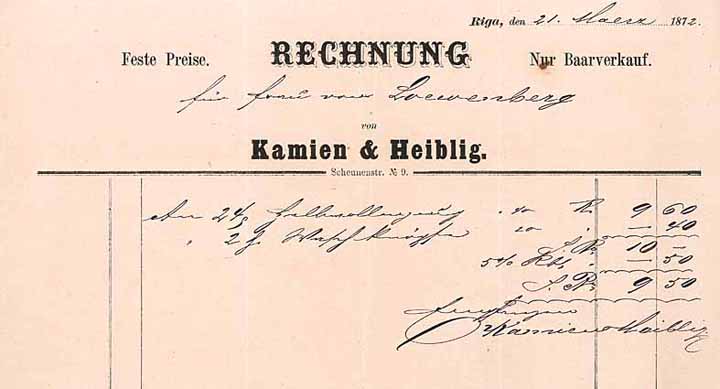 Riga, den 21. Maerz 1872.
Feste Preise. RECHNUNG Nur Baarverkauf.
für Frau von Loewenberg
von
Kamien & Heiblig.
Scheunenstr. № 9.
An 24 Halbwollenzeug " 40 R. 9 60
" 2 Waschknöpfe 20 — 40
S. R. 10 —
5% Rbt. " — 50
S. R. 9 50
Kamien & Heiblig